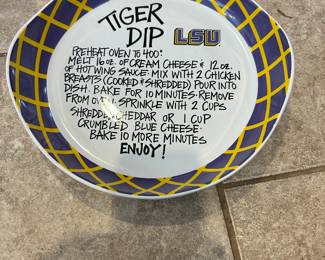 TIGER
DIP
LSU
PREHEAT OVEN TO 400°
MELT 16 OZ. OF CREAM CHEESE & 12 OZ.
OF HOT WING SAUCE. MIX WITH 2 CHICKEN
BREASTS (COOKED & SHREDDED) POUR INTO
DISH. BAKE FOR 10 MINUTES. REMOVE
FROM OVEN SPRINKLE WITH 2 CUPS
SHREDDED CHEDDAR OR 1 CUP
CRUMBLED BLUE CHEESE.
BAKE 10 MORE MINUTES
ENJOY!